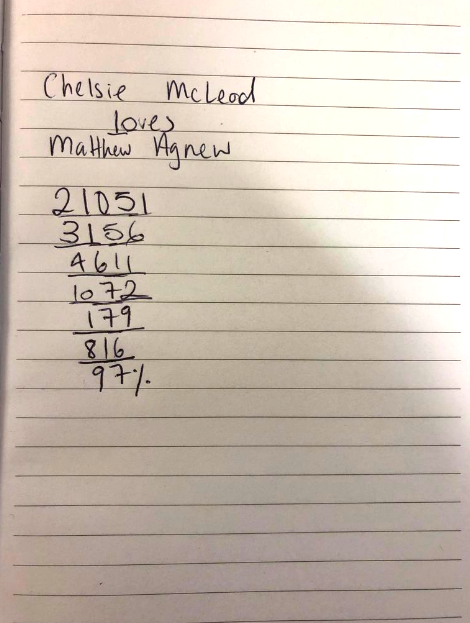 Chelsie McLeod
loves
Matthew Agnew
21051
3156
4611
1072
179
816
97%